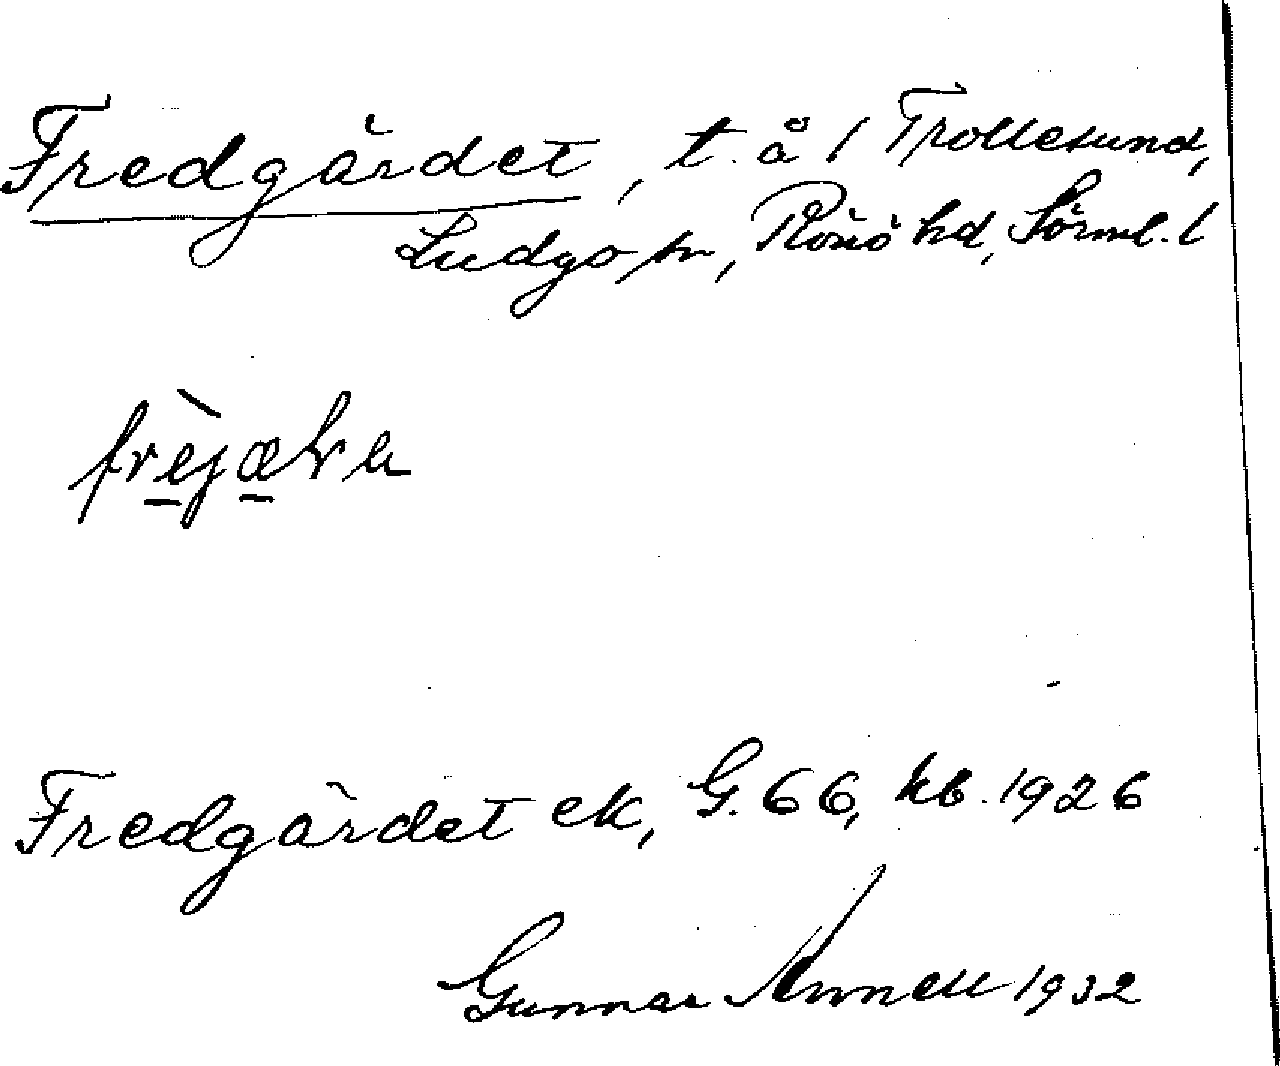 Fredgärdet, t. å / Trollesund,
Ludgo sn, Rönö hd, Sörml. l
Fredgärdet ek, G. 66, kb. 1926
Gunnar 1932